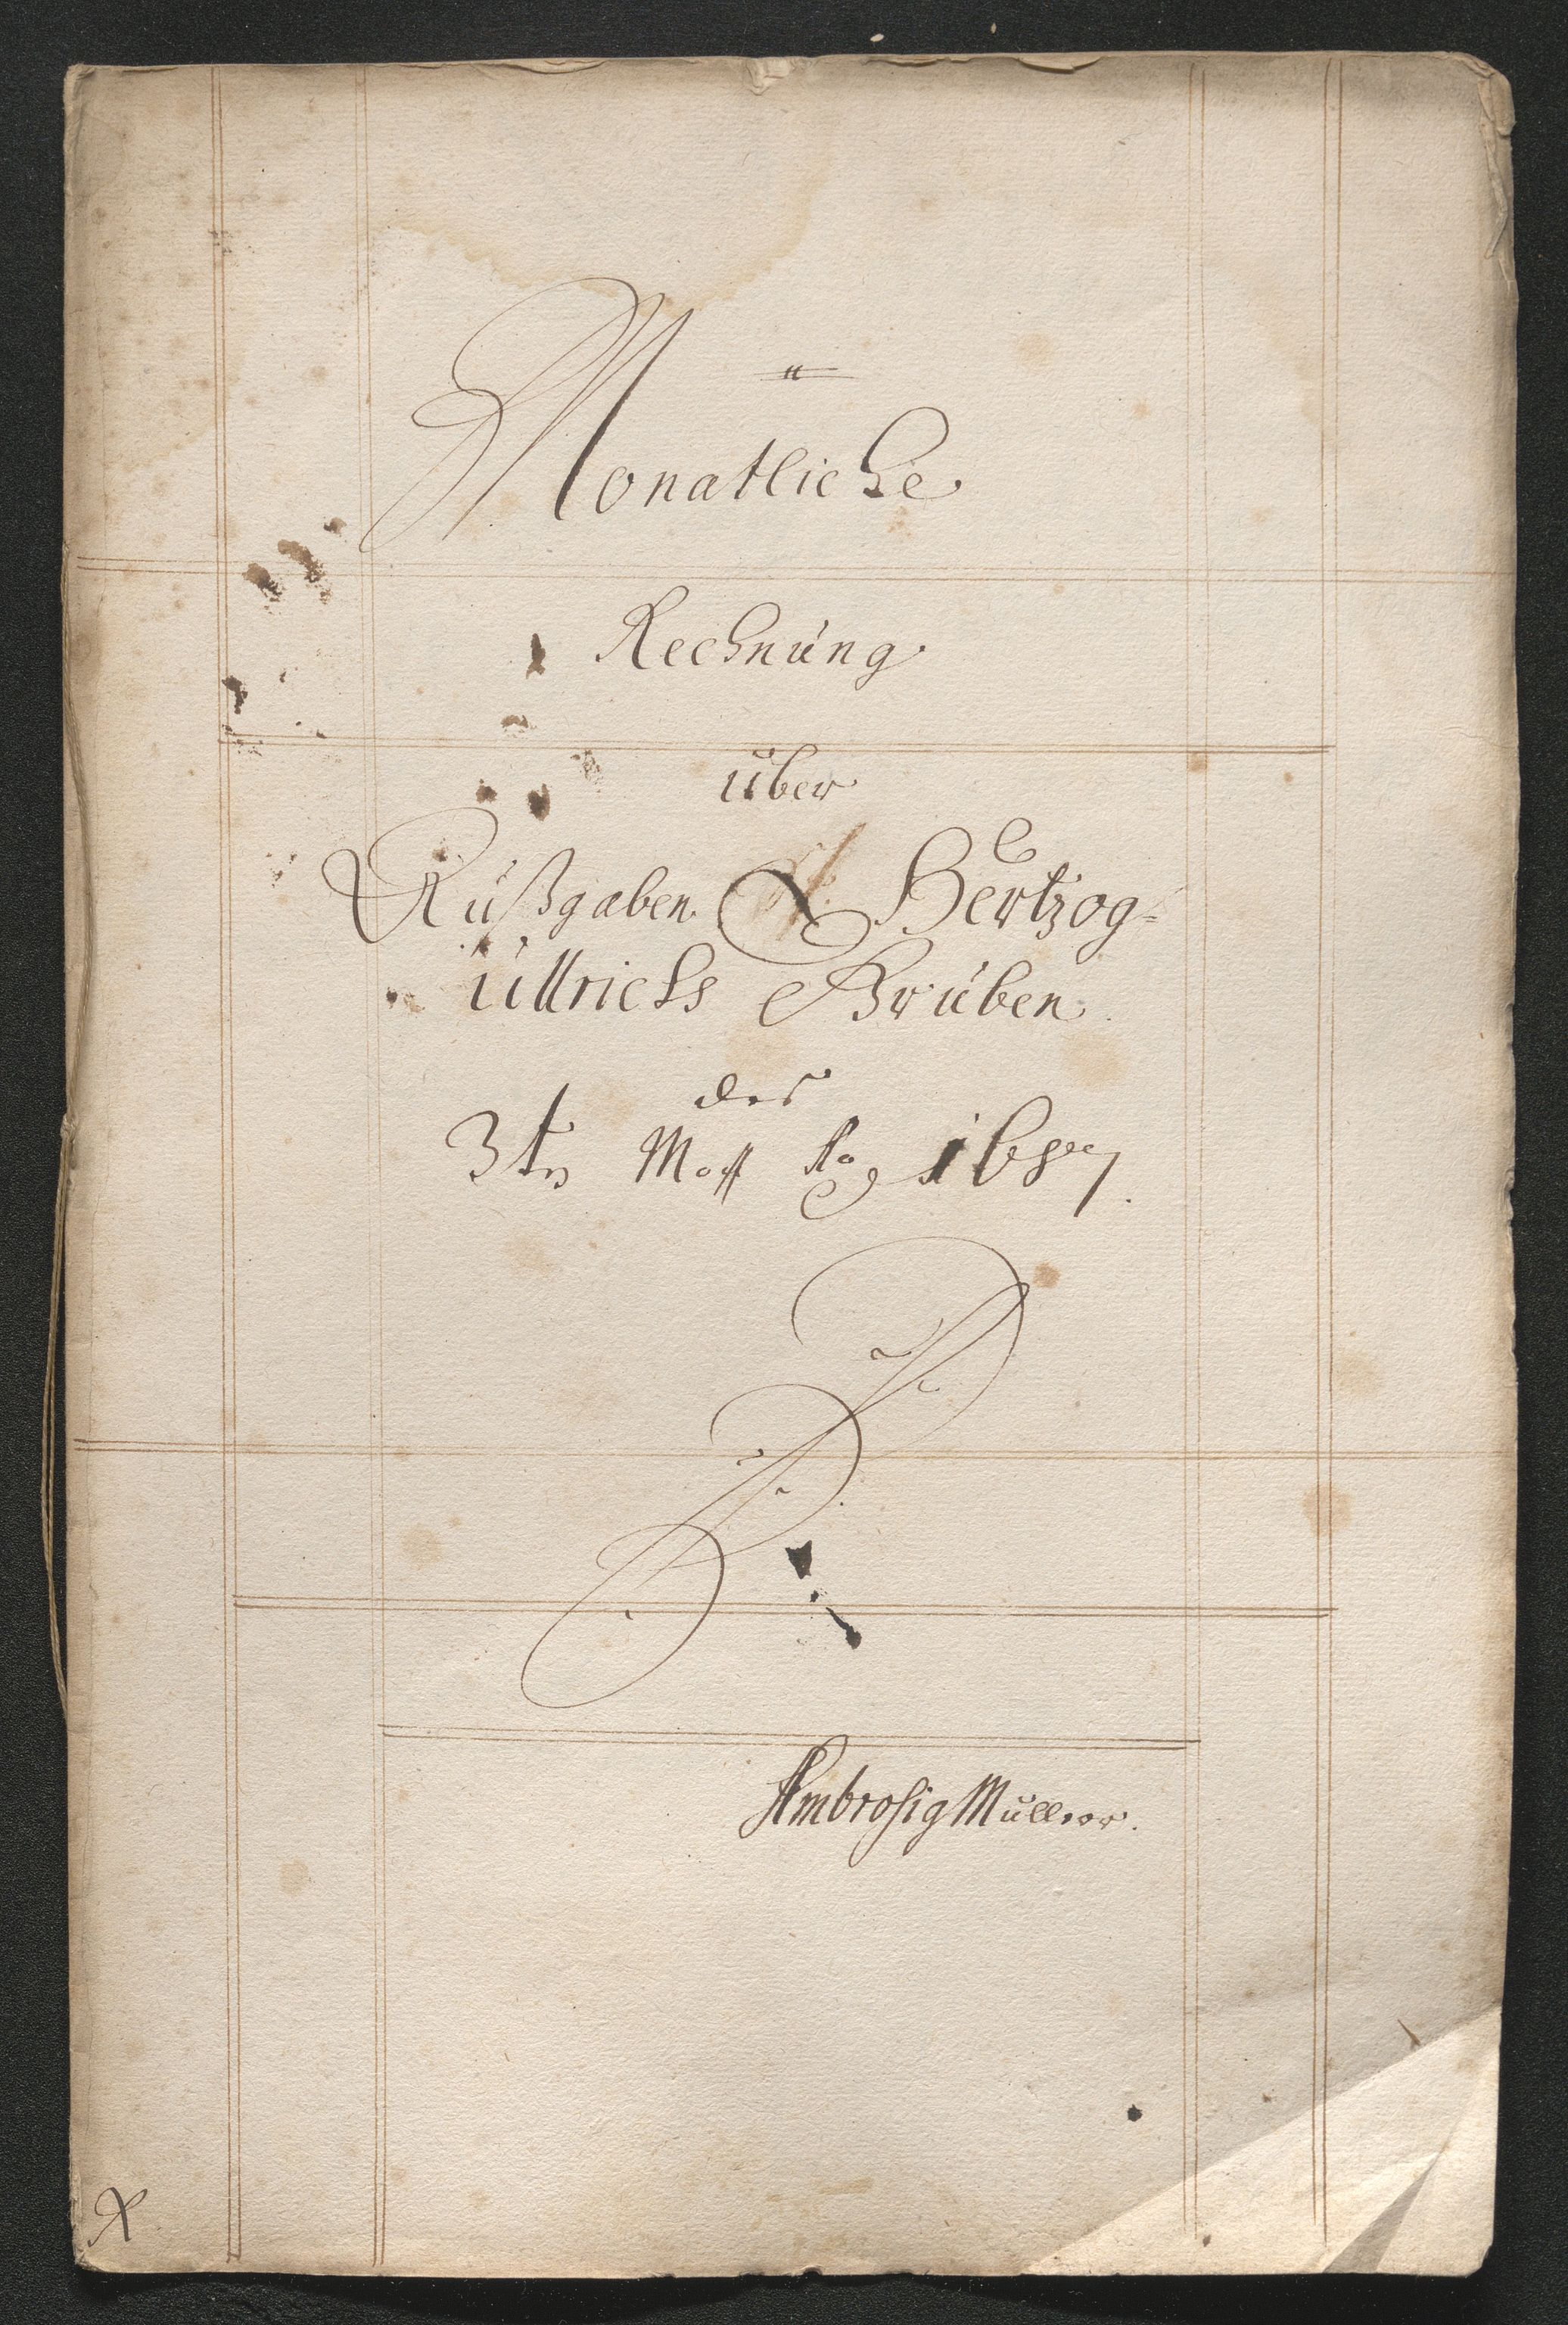 "
Monatliche
Rechnung
über
Außgaben Hertzog=
Ullrichs Gruben
des
3t. Mon. Ao 1687.
Ambrosig Müller.
X